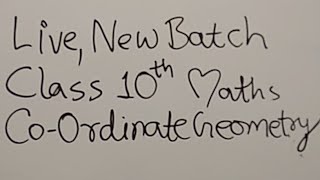 Live, New Batch
Class 10th Maths
Co-Ordinate Geometry